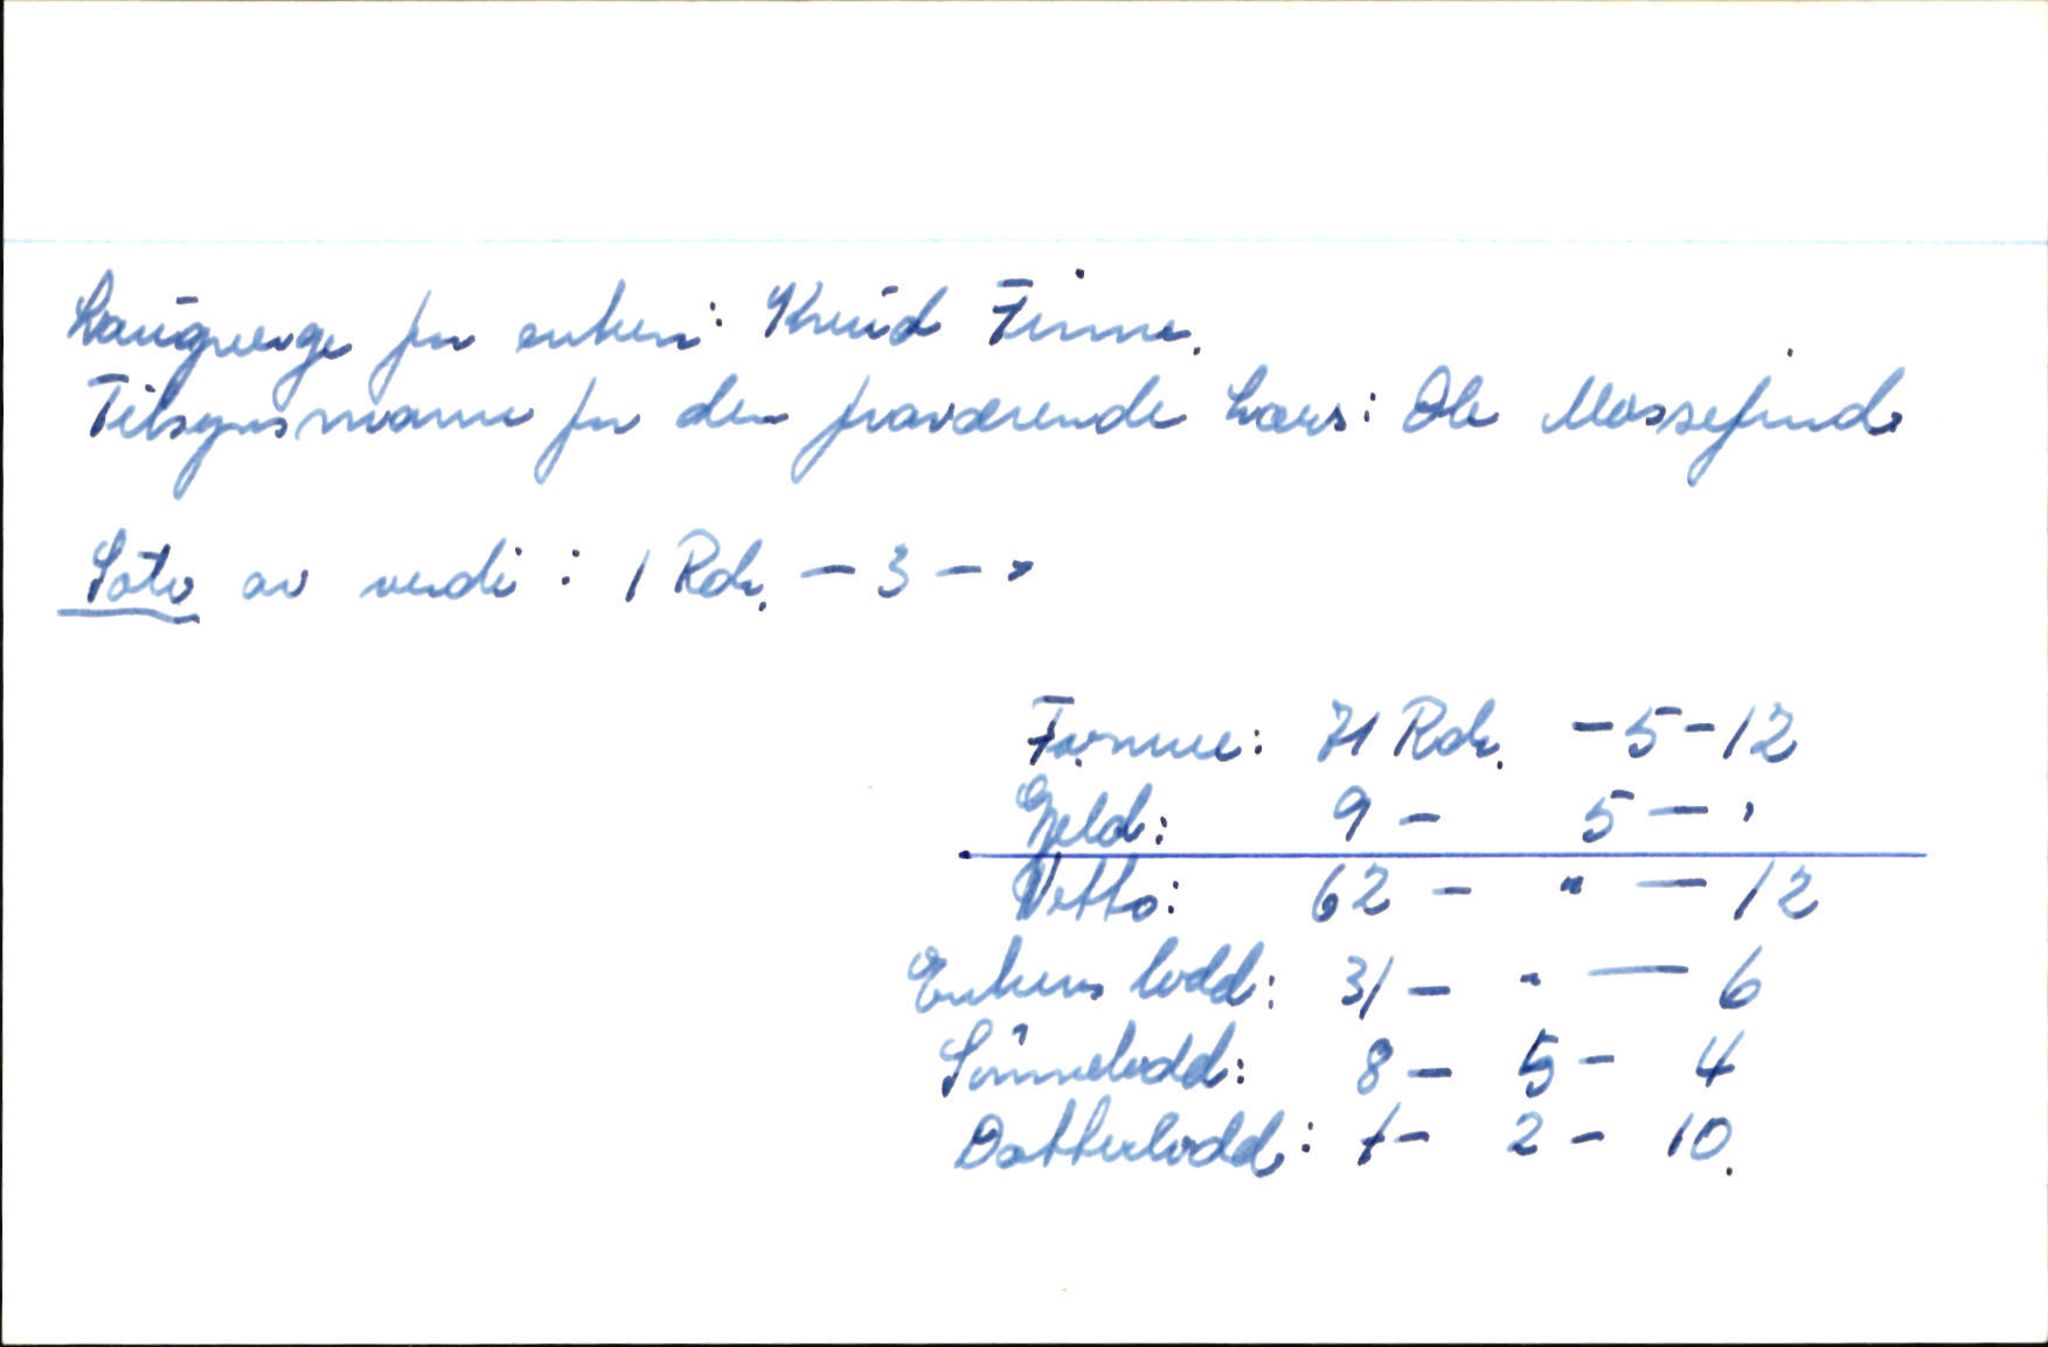 Laugverge for enken: Knud Finne.
Tilsynsmann for den fraværende Lars: Ole Mossefind
Sølv av verdi: 1 Rdr. - 3 - "
Formue: 71 Rdr. - 5 - 12
Gjeld: 9 - 5 - "
Netto: 62 - " - 12
Enkens lodd: 31 - " - 6
Sønnelodd: 8 - 5 - 4
Datterlodd: 4 - 2 - 10.